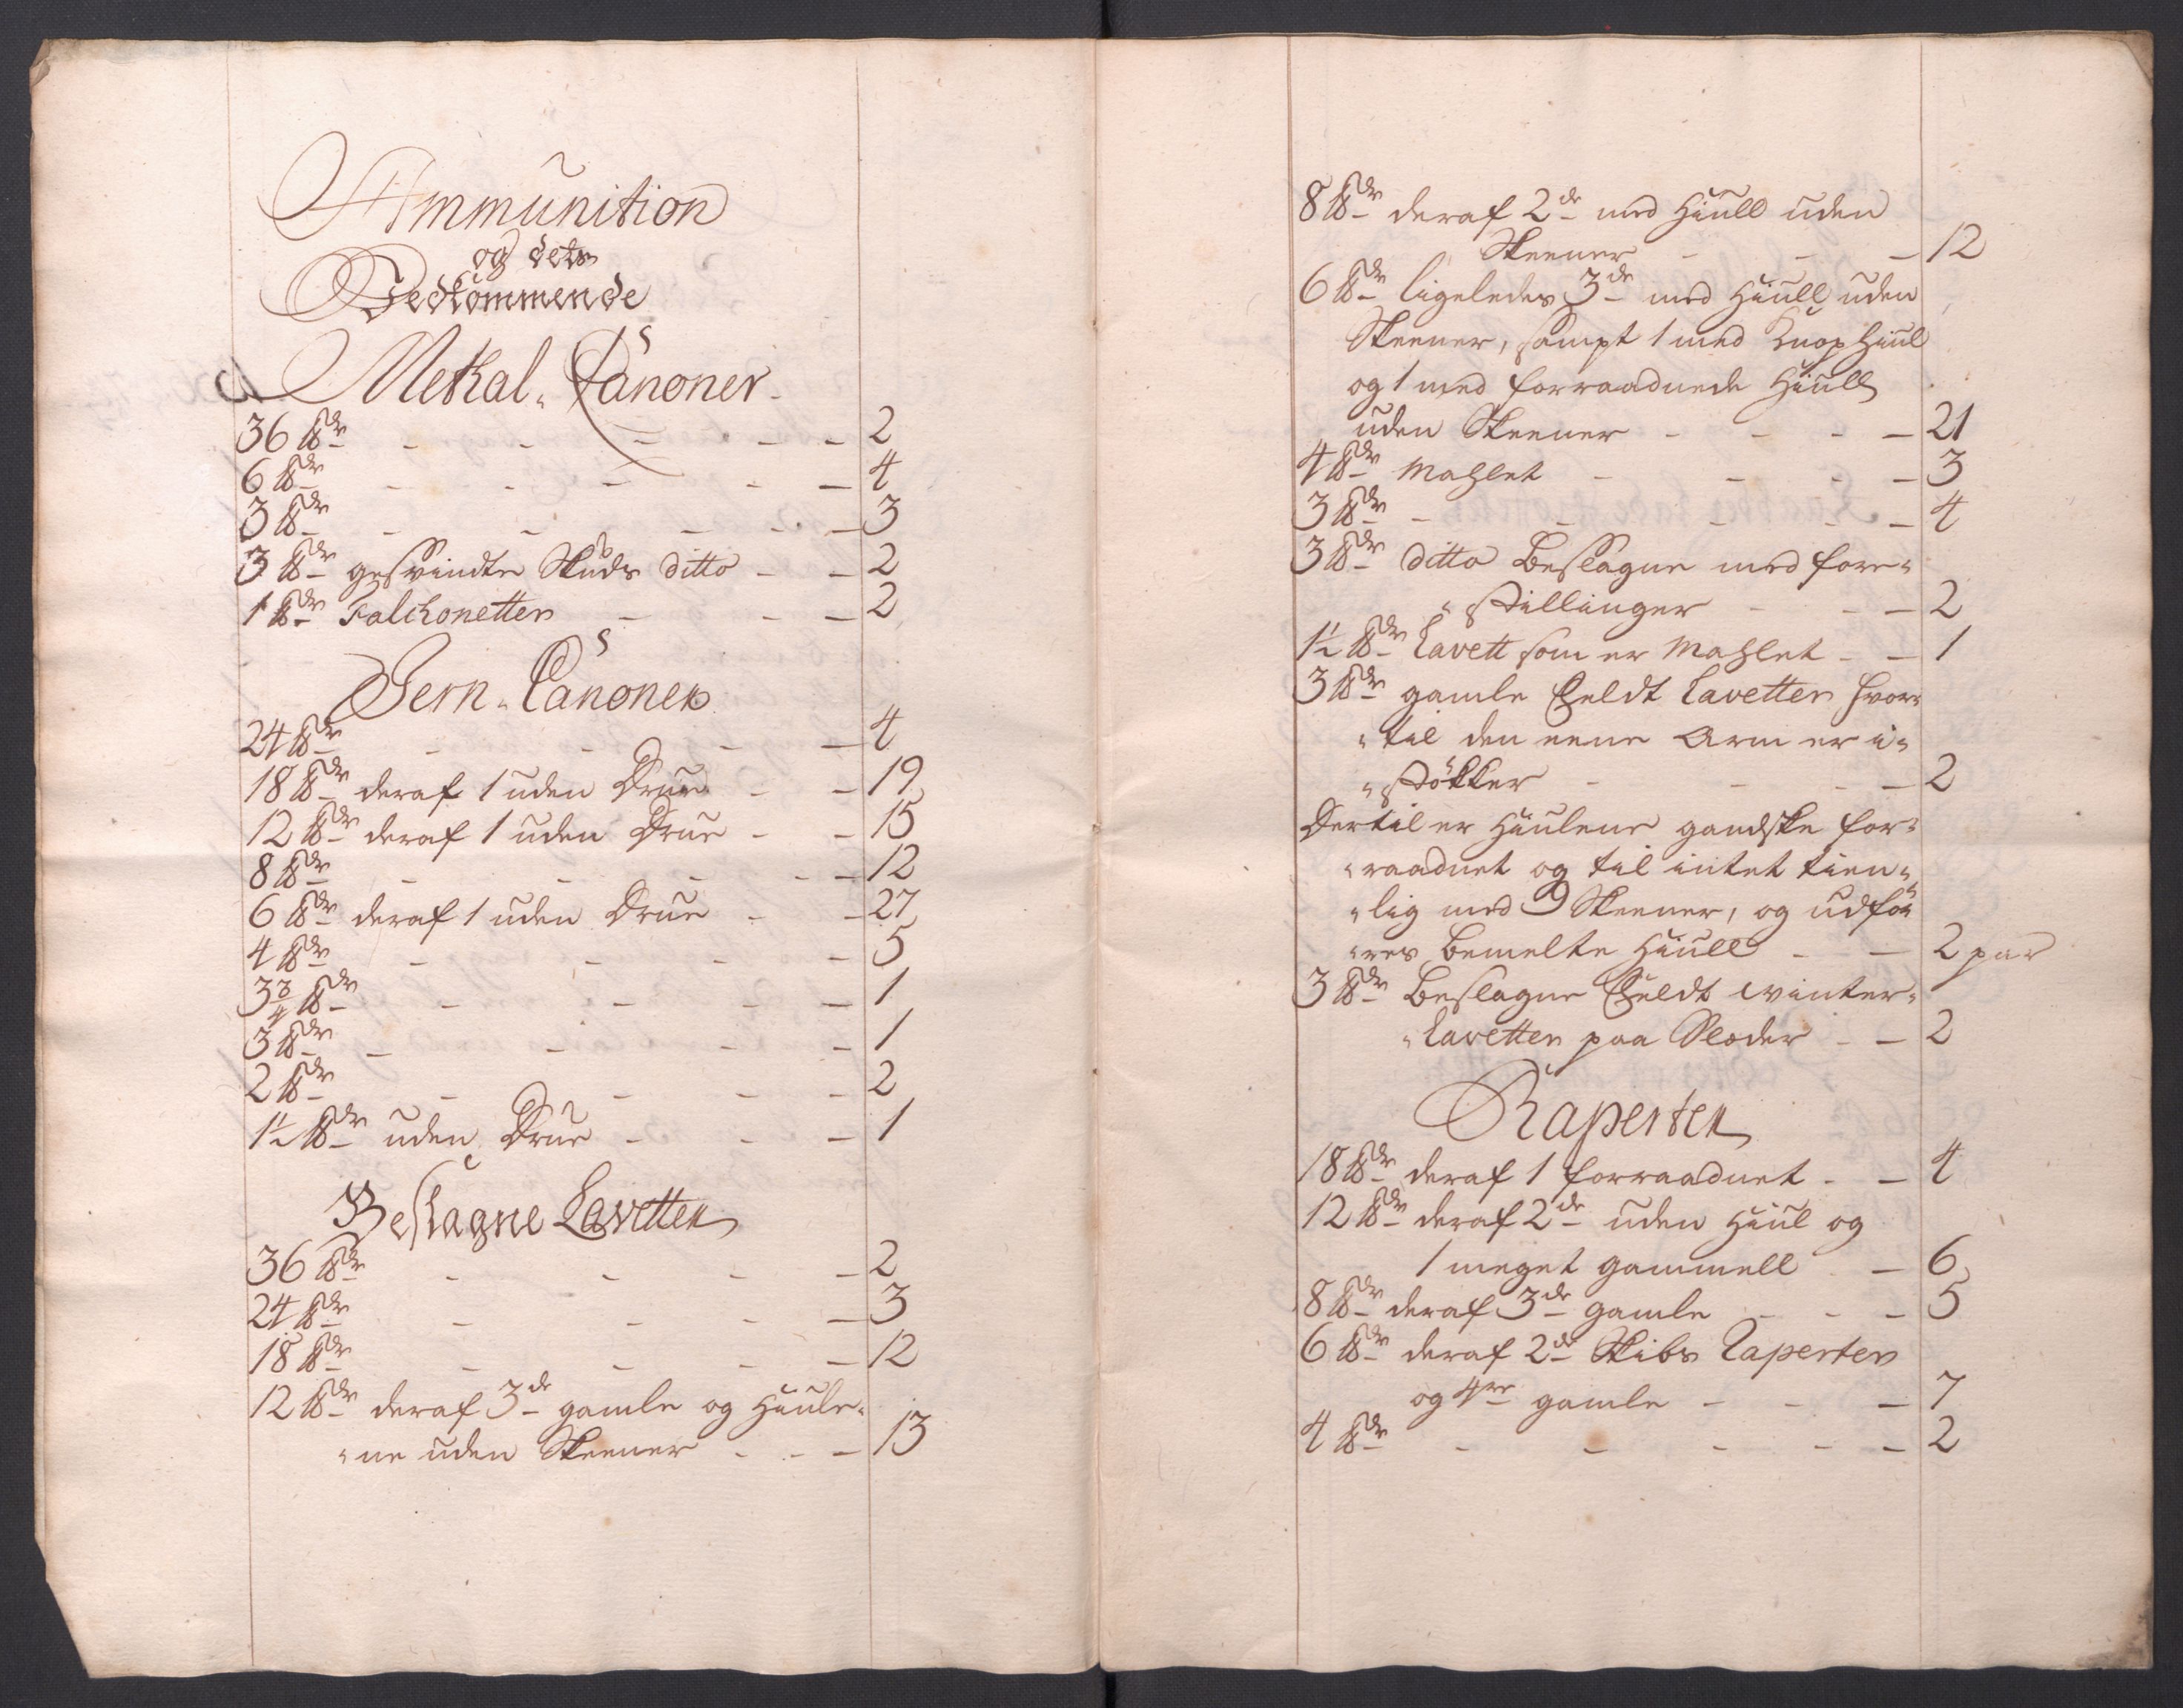 Ammunition
og dets
Vedkommende
Metal-Canoner
36 ℔dr - - - - - 2
6 ℔dr - - - - - 4
3 ℔dr - - - - - 3
3 ℔dr gesvindte Skuds ditto - - 2
1 ℔dr Falckonetter - - - 2
Jern-Canoner
24 ℔dr - - - - 4
18 ℔dr deraf 1 uden Drue - - 19
12 ℔dr deraf 1 uden Drue - - 15
8 ℔dr - - - - - 12
6 ℔dr deraf 1 uden Drue - - 27
4 ℔dr - - - - 5
3¾ ℔dr - - - - 1
3 ℔dr - - - - 1
2 ℔dr - - - - 2
1½ ℔dr uden Drue - - - 1
Beslagne Lavetter
36 ℔dr - - - - 2
24 ℔dr - - - - 3
18 ℔dr - - - - 12
12 ℔dr deraf 3de gamle og Hiule-
-ne uden Skeener - - - 13
8 ℔dr deraf 2de med Hiull uden
Skeener - - - 12
6 ℔dr ligeledes 3de med Hiull uden
Skeener, sampt 1 med Knop Hiul
og 1 med forraadnede Hiull
uden Skeener - - - - 21
4 ℔dr Mahlet - - - - 3
3 ℔dr - - - - - 4
3 ℔dr ditto Beslagne med fore-
-stillinger - - - 2
1½ ℔dr Lavett som er Mahlet - - 1
3 ℔dr gamle Feldt Lavetter hvor-
-til den eene Arm er i-
-støkker - - - - 2
Dertil er Hiulene gandske for-
-raadnet og til intet tien-
-lig med 9 Skeener, og udfø-
-res bemelte Hiull - - 2 par
3 ℔dr Beslagne Feldt Winter-
-Lavetter paa Slæder - - 2
Raperter
18 ℔dr deraf 1 forraadnet - - 4
12 ℔dr deraf 2de uden Hiul og
1 meget gammell - 6
8 ℔dr deraf 3de gamle - - - 5
6 ℔dr deraf 2de Skibs Raperter
og 4re gamle - - - 7
4 ℔dr - - - - - 2